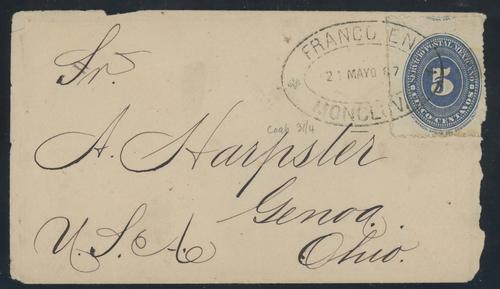 FRANCO EN
21 MAYO 87
MONCLOVA
SERVICIO POSTAL MEXICANO
5
CINCO CENTAVOS
Sr.
Coah 31/4
A. Harpster
Genoa.
U.S.A. Ohio.